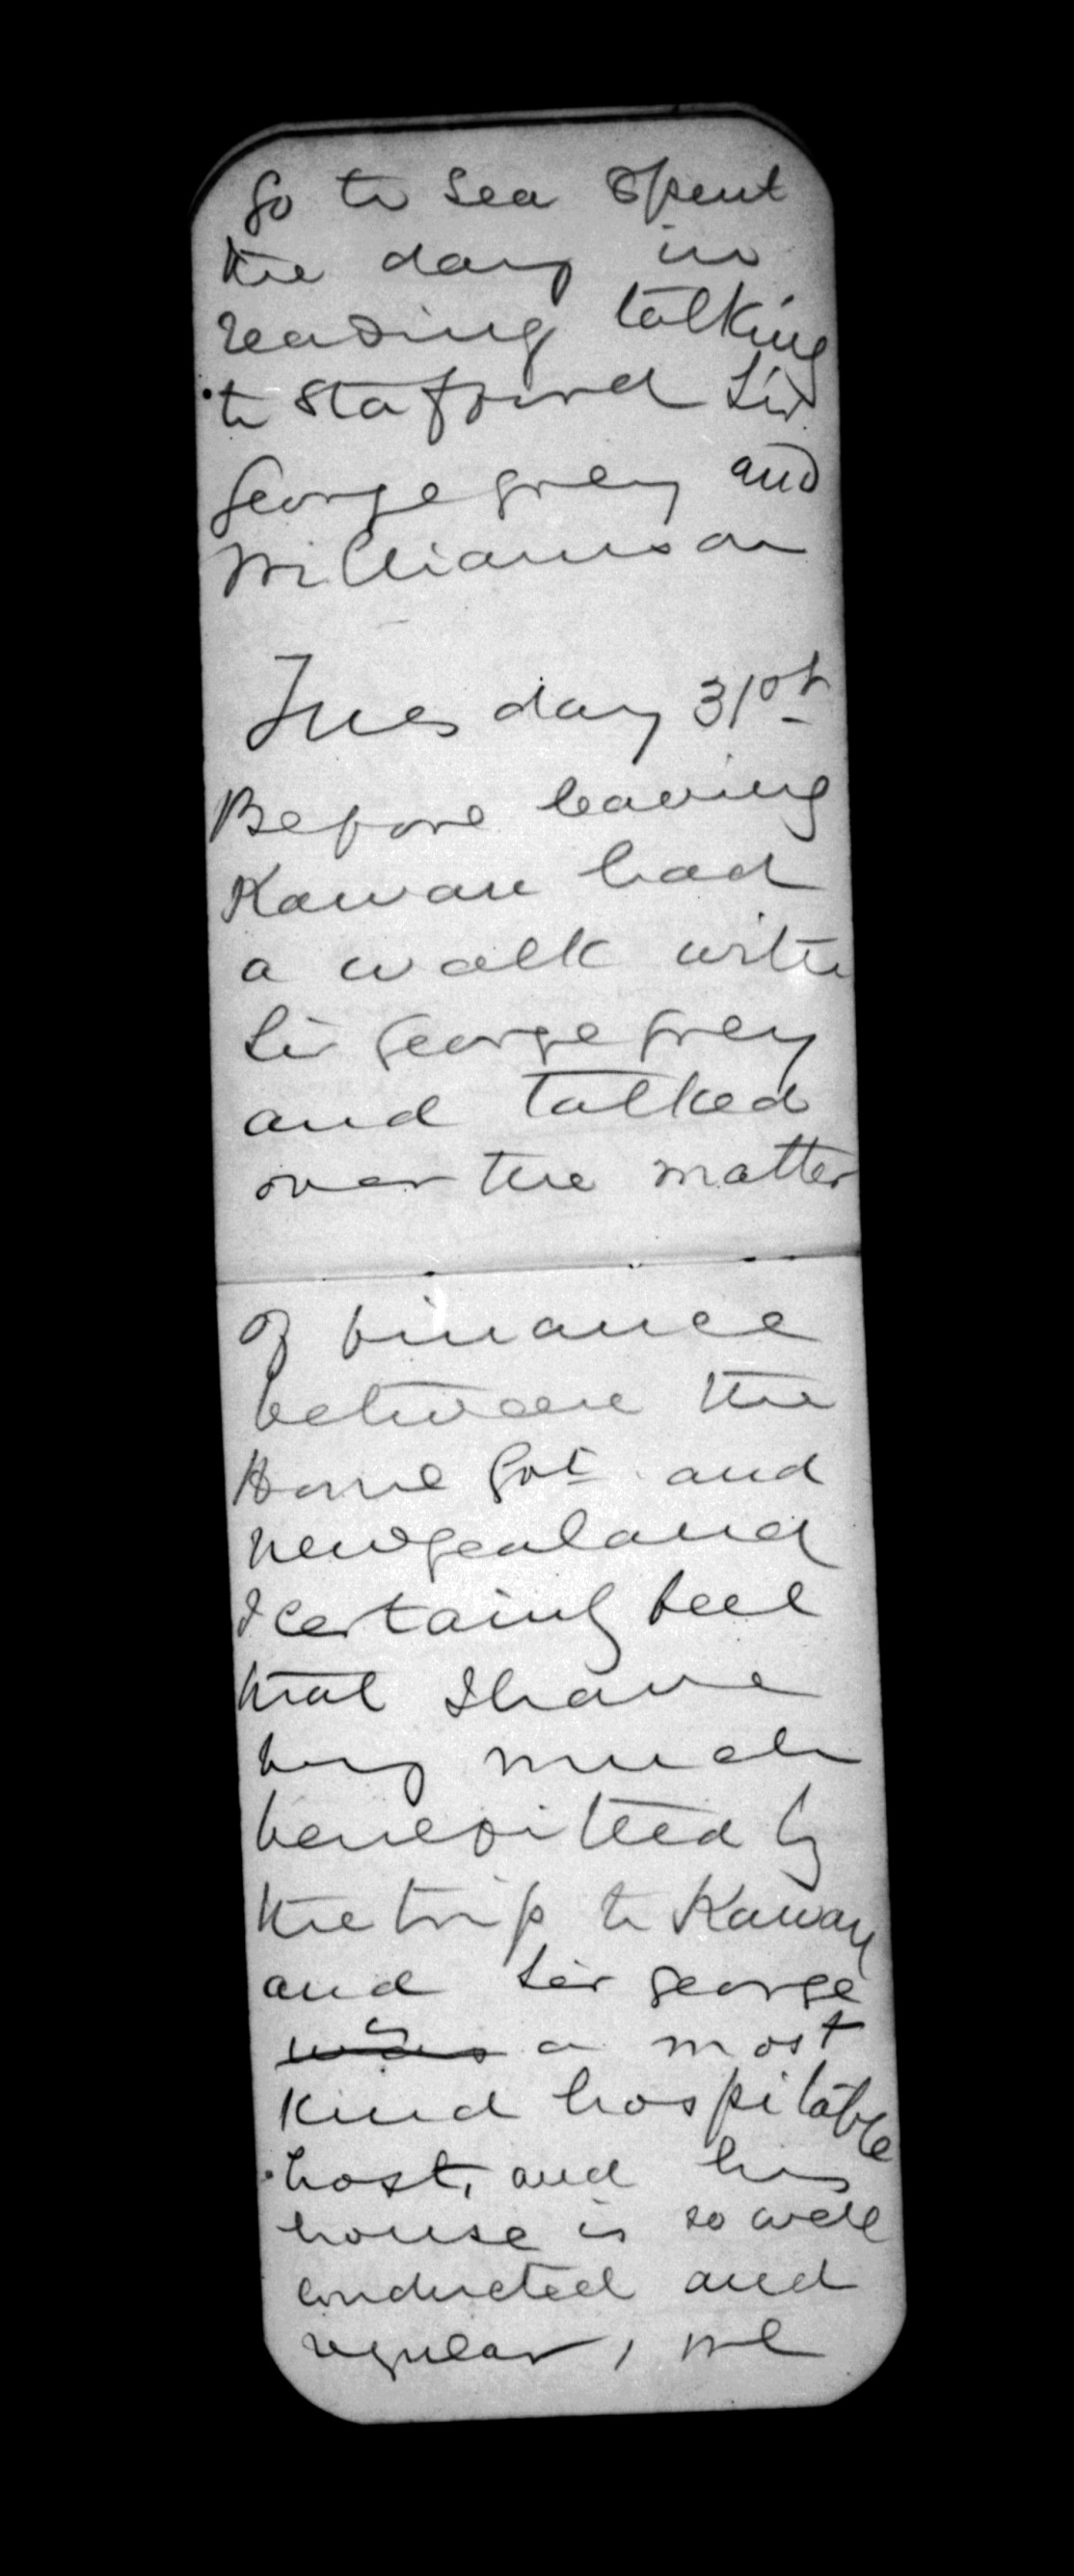 go to sea spent
the day in
reading talking
to Stafford Sir
George Grey and
Williamson
Tuesday 31st
Before leaving
Kawau had
a walk with
Sir George Grey
and talked
over the matter
of finance
between the
Home Govt and
New Zealand
I certainly feel
that I have
very much
benefitted by
the trip to Kawau
and Sir George
was is a most
kind hospitable
host, and his
house is so well
conducted and
regular, we